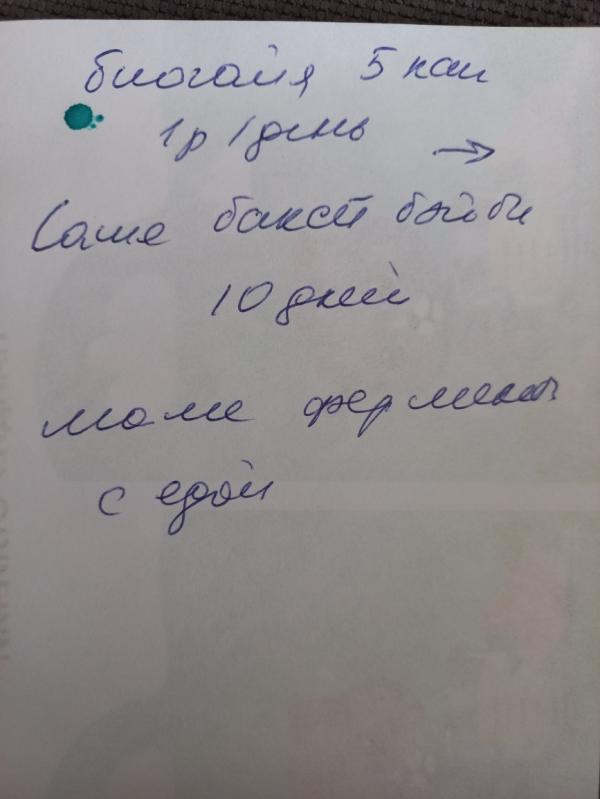 биогайя 5 кап
1р/день →
Саше баксет бэйби
10 дней
маме ферменты
с едой